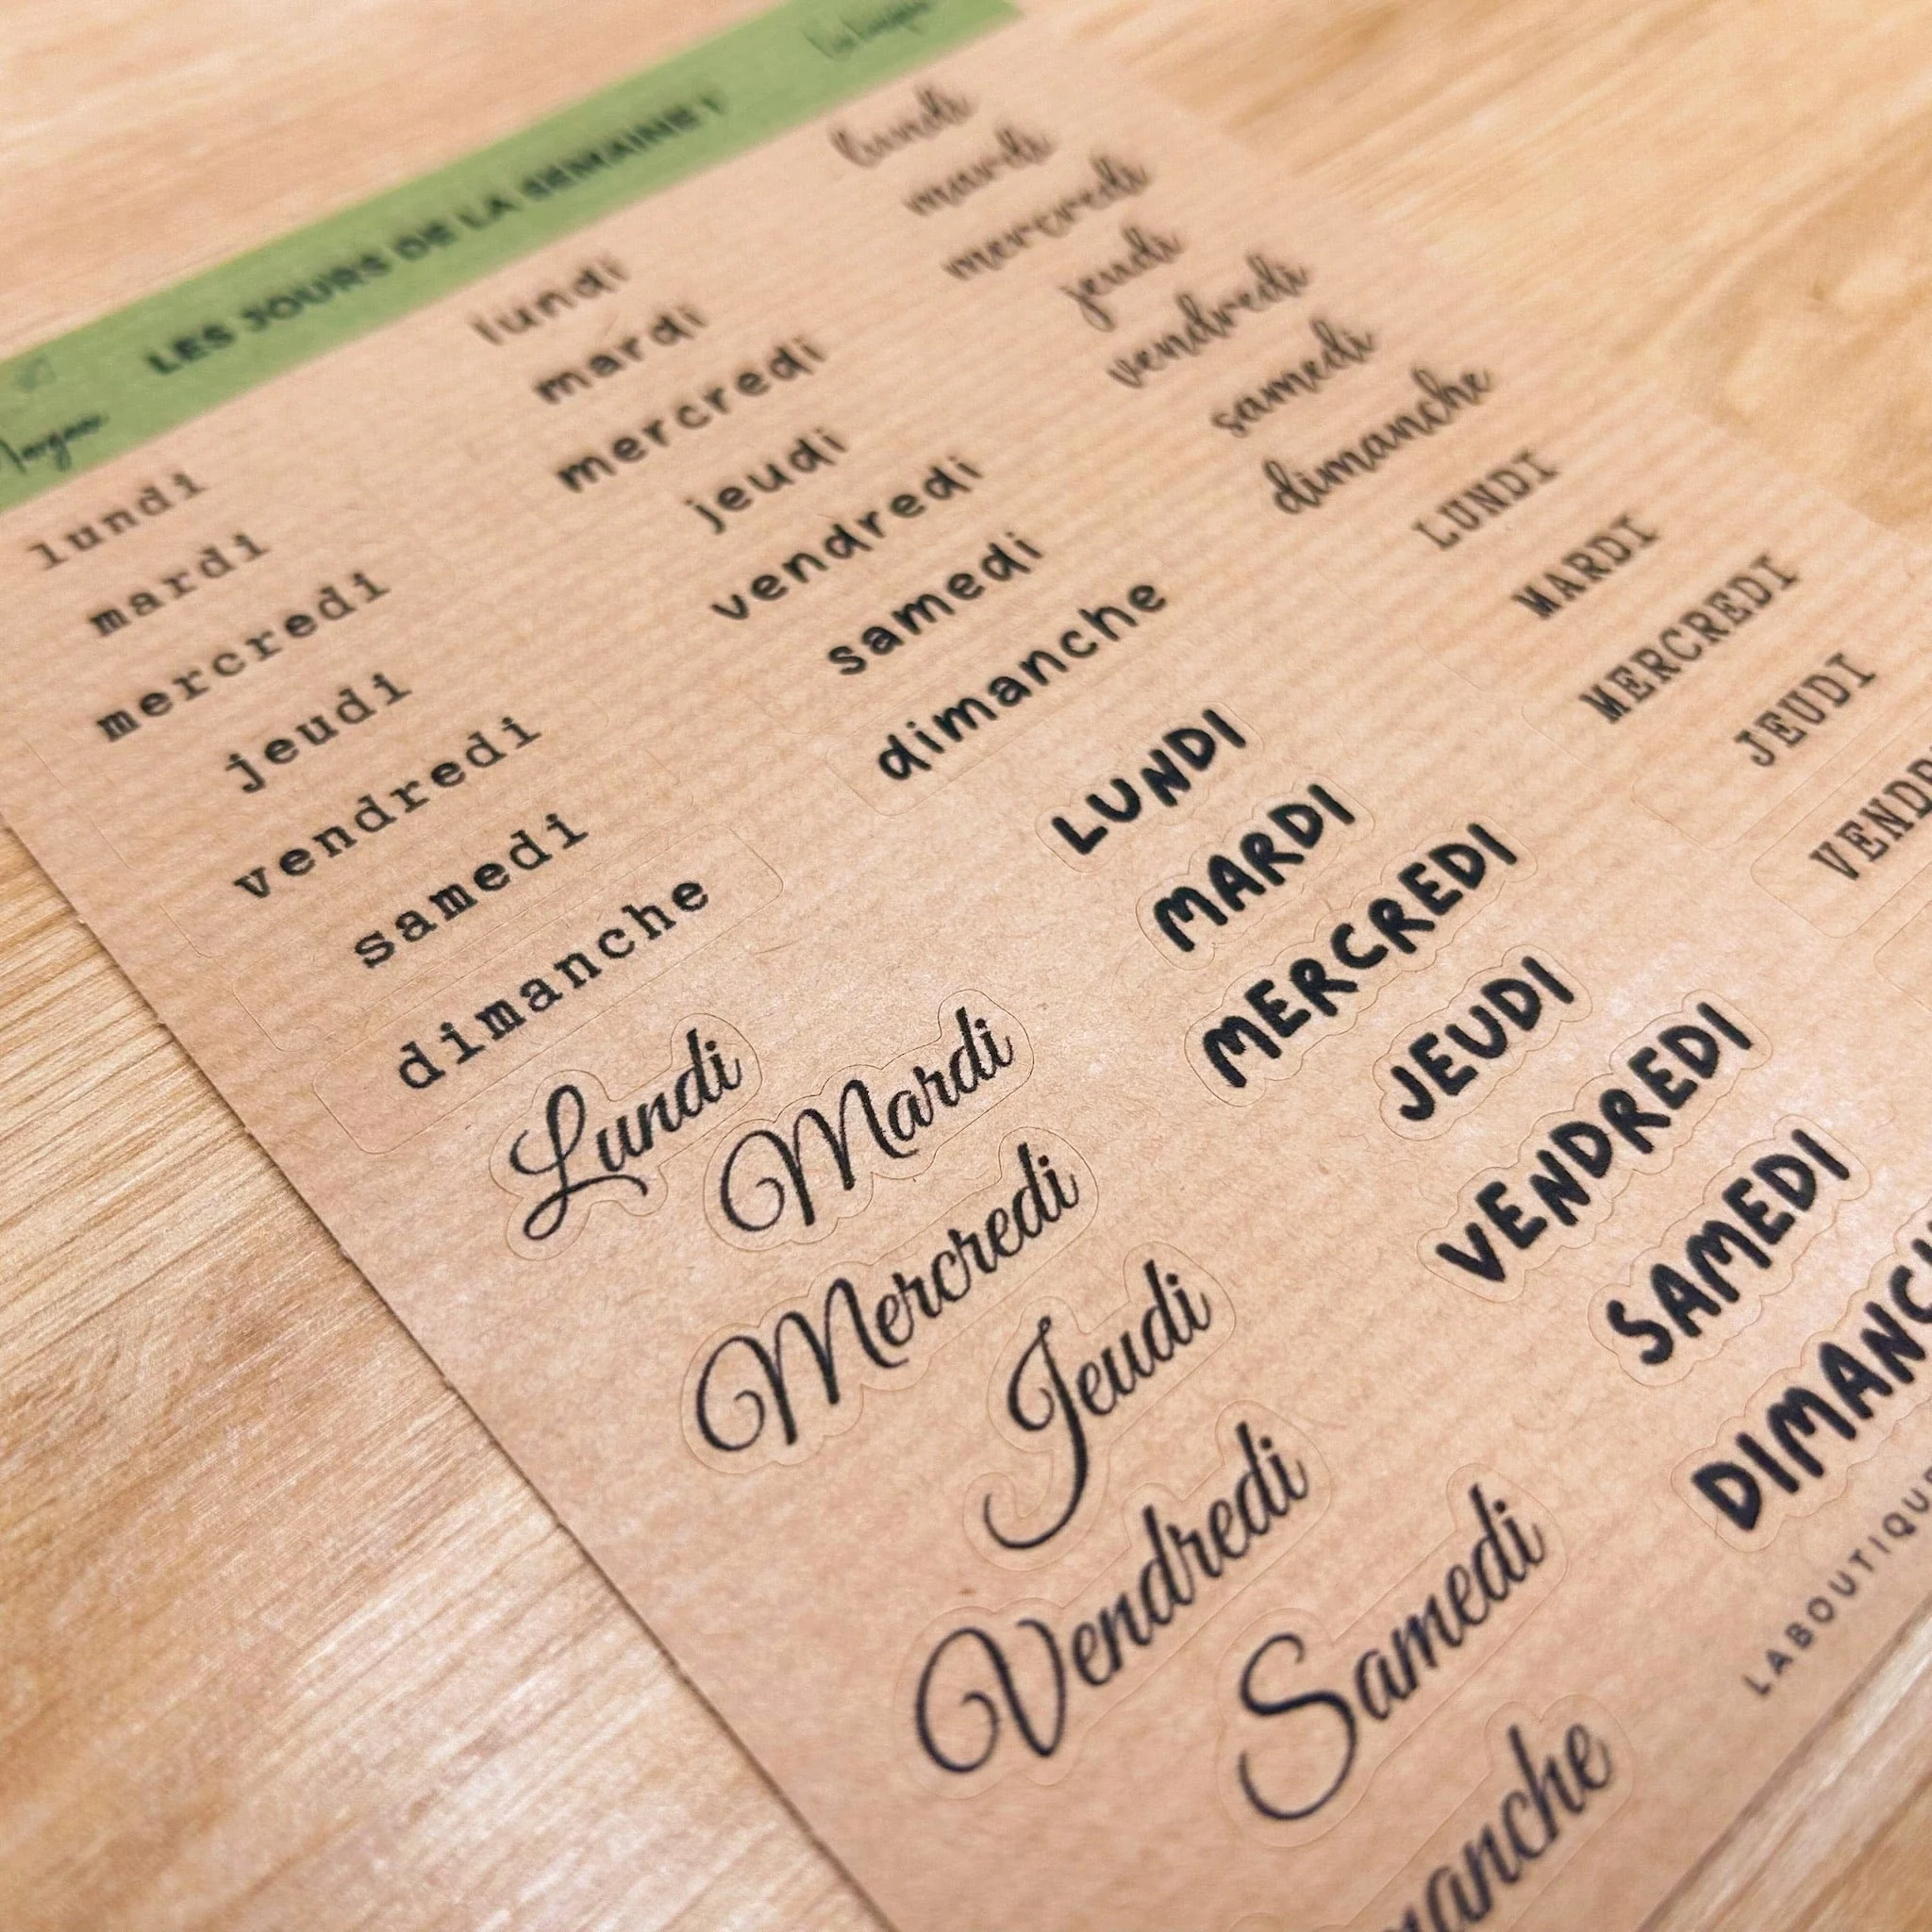 LES JOURS DE LA SEMAINE !
lundi
mardi
mercredi
jeudi
vendredi
samedi
dimanche
lundi
mardi
mercredi
jeudi
vendredi
samedi
dimanche
lundi
mardi
mercredi
jeudi
vendredi
samedi
dimanche
Lundi
Mardi
Mercredi
Jeudi
Vendredi
Samedi
manche
LUNDI
MARDI
MERCREDI
JEUDI
VENDREDI
SAMEDI
DIMANC
LUNDI
MARDI
MERCREDI
JEUDI
VENDR
LABOUTIQU